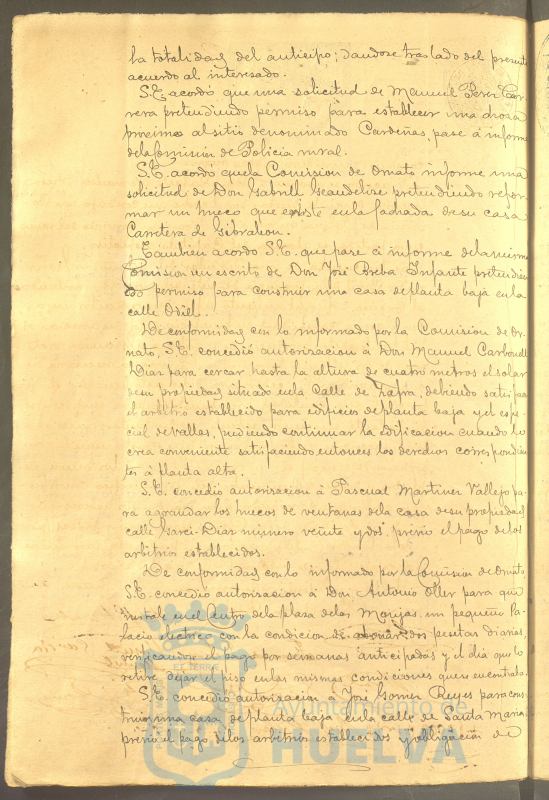 la totalidad del anticipo; dandose traslado del presente
acuerdo al interesado.
S.E. acordó que una solicitud de Manuel Perez Car-
rera pretendiendo permiso para establecer una choza
proximo al sitio denominado Cardeñas, pase á informe
de la Comision de Policia rural.
S.E. acordó que la Comision de Ornato informe una
solicitud de Don Gabriel pretendiendo refor-
mar un hueco que existe en la fachada de su casa
Carretera de Gibraleon.
Tambien acordó S.E. que pase á informe de la misma
Comision un escrito de Don José Breba Infante pretendien
do permiso para construir una casa de planta baja en la
calle Odiel.
De conformidad con lo informado por la Comision de Or-
nato, S.E. concedió autorizacion á Don Manuel Carbonell
Diaz para cercar hasta la altura de cuatro metros el solar
de su propiedad situado en la Calle de Zafra, debiendo satisfacer
el arbitrio establecido para edificios de planta baja y el espe-
cial de vallas, pudiendo continuar la edificacion cuando lo
crea conveniente satisfaciendo entonces los derechos correspondien
tes á planta alta.
S.E. concedió autorizacion á Pascual Martinez Vallejo pa-
ra agrandar los huecos de ventanas de la casa de su propiedad
calle Garci-Diaz número veinte y dos previo el pago de los
arbitrios establecidos.
De conformidad con lo informado por la Comision de Ornato,
S.E. concedió autorizacion á Don Antonio Oller para que
instale en el centro de la plaza de las Monjas, un pequeño Pa-
lacio electrico con la condicion de abonar dos pesetas diarias,
verificandose el pago por semanas anticipadas y el dia que lo
retire dejar el piso en las mismas condiciones que se encontraba.
S.E. concedió autorizacion á José Gomez Reyes para cons
truir una casa de planta baja en la calle de Santa Maria,
previo el pago de los arbitrios establecidos y obligacion de
Ayuntamiento de
HUELVA